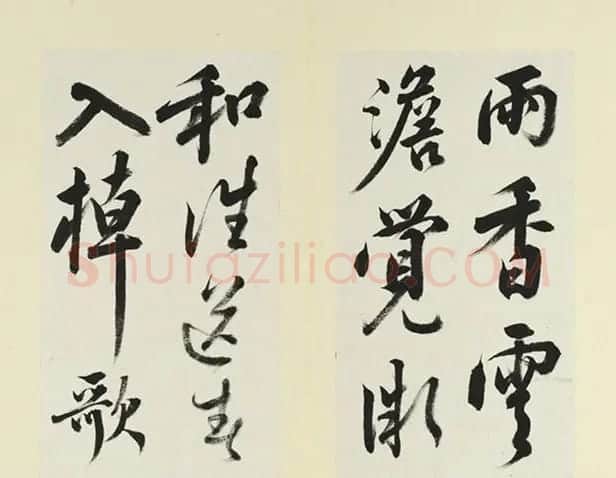 雨香雲
澹覺微
和誰送春
入棹歌
Shufaziliao.COM